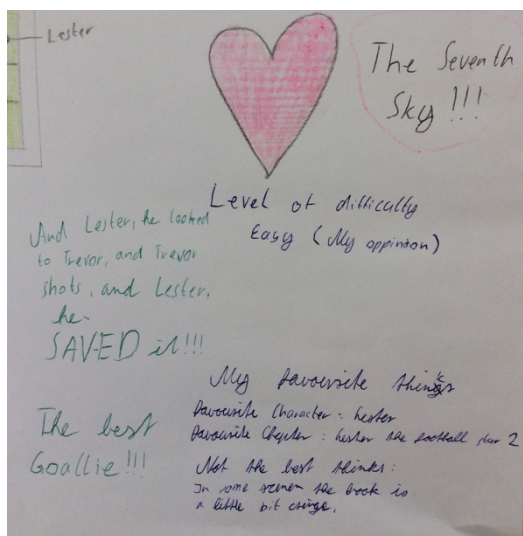 Lester
The Seventh
Sky!!!
Level of difficulty
Easy (My oppinion)
And Lester, he looked
to Trevor, and Trevor
shots, and Lester,
he-
SAVED it!!!
The best
Goallie!!!
My favourite things
Favourite Character: Lester
Favourite Chapter: Lester the football star 2
Not the best thinks:
In some scenen the book is
a little bit cringe.